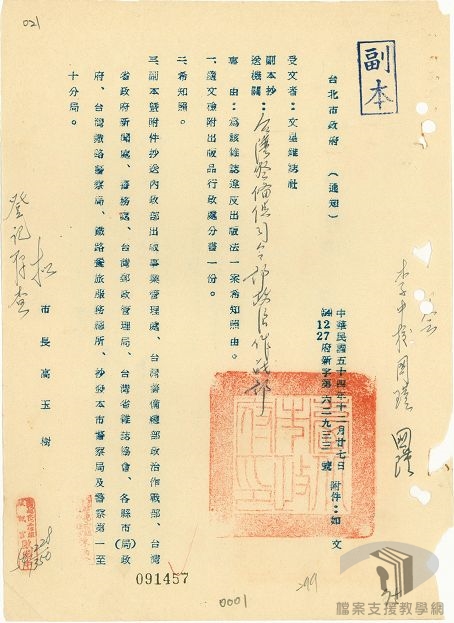 021
副本
台北市政府　（通知）
受文者：文星雜誌社
副本抄送機關：台灣警備總司令部政治作戰部
中華民國五十四年十二月廿七日
54 12 27 府新字第六二九三三號
附件：如文
事由：為該雜誌違反出版法一案希知照由。
一、隨文檢附出版品行政處分書一份。
二、希知照。
三、副本暨附件抄送內政部出版事業管理處、台灣警備總部政治作戰部、台灣
省政府新聞處、警務處、台灣郵政管理局、台灣省雜誌協會、各縣市（局）政
府、台灣鐵路警察局、鐵路餐旅服務總所、抄發本市警察局及警察第一至
十分局。
市長高玉樹
登記存查
091457
0001
299
檔案支援教學網